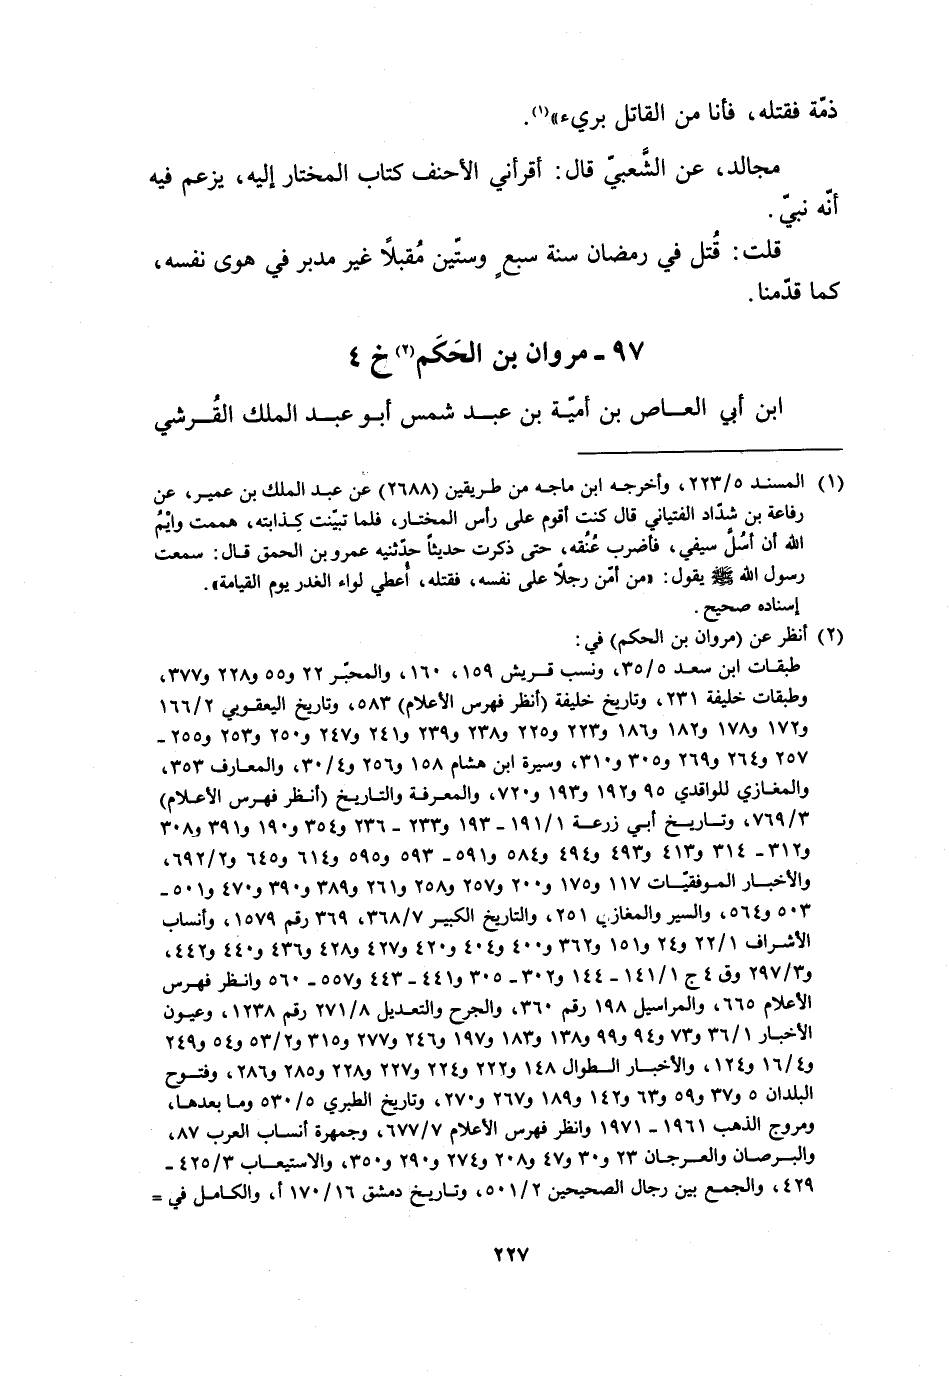 ذمّة فقتله، فأنا من القاتل بريء»(١).
مجالد، عن الشَّعبيّ قال: أقرأني الأحنف كتاب المختار إليه، يزعم فيه
أنّه نبيّ.
قلت: قُتل في رمضان سنة سبعٍ وستّين مُقبلاً غير مدبر في هوى نفسه،
كما قدّمنا.
٩٧ ـ مروان بن الحَكَم(٢) خ ٤
ابن أبي العـاص بن أميّـة بن عبـد شمس أبـو عبـد الملك القُـرشي
(١) المسند ٢٢٣/٥، وأخرجـه ابن ماجـه من طـريقين (٢٦٨٨) عن عبـد الملك بن عميـر، عن
رفاعة بن شدّاد الفتياني قال كنت أقوم على رأس المختـار، فلما تبيّنت كـذابته، هممت وايْمُ
الله أن أسُلَّ سيفي، فأضرب عُنُقه، حتى ذكرت حديثاً حدّثنيه عمرو بن الحمق قـال: سمعت
رسول الله ﷺ يقول: «من أمّن رجلاً على نفسه، فقتله، أُعطي لواء الغدر يوم القيامة».
إسناده صحيح.
(٢) أنظر عن (مروان بن الحكم) في:
طبقـات ابن سعد ٣٥/٥، ونسب قـريش ١٥٩، ١٦٠، والمحبّر ٢٢ و٥٥ و٢٢٨ و٣٧٧،
وطبقات خليفة ٢٣١، وتاريخ خليفة (أنظر فهرس الأعلام) ٥٨٣، وتاريخ اليعقـوبي ١٦٦/٢
و١٧٢ و١٧٨ و١٨٢ و١٨٦ و٢٢٣ و٢٢٥ و٢٣٨ و٢٣٩ و٢٤١ و٢٤٧ و٢٥٠ و٢٥٣ و٢٥٥ ـ
٢٥٧ و٢٦٤ و٢٦٩ و٣٠٥ و٣١٠، وسيرة ابن هشام ١٥٨ و٢٥٦ و٣٠/٤، والمعارف ٣٥٣،
والمغازي للواقدي ٩٥ و١٩٢ و١٩٣ و٧٢٠، والمعرفة والتاريخ (أنظر فهرس الأعلام)
٧٦٩/٣، وتـاريـخ أبي زرعـة ١٩١/١ ـ ١٩٣ و٢٣٣ ـ ٢٣٦ و٣٥٤ و١٩٠ و٣٩١ و٣٠٨
و٣١٢ ـ ٣١٤ و٤١٣ و٤٩٣ و٤٩٤ و٥٨٤ و٥٩١ ـ ٥٩٣ و٥٩٥ و٦١٤ و٦٤٥ و٦٩٢/٢،
والأخبـار الموفقيّـات ١١٧ و١٧٥ و٢٠٠ و٢٥٧ و٢٥٨ و٢٦١ و٣٨٩ و٣٩٠ و٤٧٠ و٥٠١ ـ
٥٠٣ و٥٦٤، والسير والمغازي ٢٥١، والتاريخ الكبير ٣٦٨/٧، ٣٦٩ رقم ١٥٧٩، وأنساب
الأشـراف ٢٢/١ و٢٤ و١٥١ و٣٦٢ و٤٠٠ و٤٠٤ و٤٢٠ و٤٢٧ و٤٢٨ و٤٣٦ و٤٤٠ و٤٤٢،
و٢٩٧/٣ وق ٤ ج ١٤١/١ ـ ١٤٤ و٣٠٢ ـ ٣٠٥ و٤٤١ ـ ٤٤٣ و٥٥٧ ـ ٥٦٠ وانـظر فهـرس
الأعلام ٦٦٥، والمراسيل ١٩٨ رقم ٣٦٠، والجرح والتعـديل ٢٧١/٨ رقم ١٢٣٨، وعيـون
الأخبـار ٣٦/١ و٧٣ و٩٤ و٩٩ و١٣٨ و١٨٣ و١٩٧ و٢٤٦ و٢٧٧ و٣١٥ و٥٣/٢ و٥٤ و٢٤٩
و١٦/٤ و١٢٤، والأخبـار الـطوال ١٤٨ و٢٢٢ و٢٢٤ و٢٢٧ و٢٢٨ و٢٨٥ و٢٨٦، وفتـوح
البلدان ٥ و٣٧ و٥٩ و٦٣ و١٤٢ و١٨٩ و٢٦٧ و٢٧٠، وتاريخ الطبري ٥٣٠/٥ ومـا بعدهـا،
ومروج الذهب ١٩٦١ ـ ١٩٧١ وانظر فهرس الأعلام ٦٧٧/٧، وجمهرة أنسـاب العرب ٨٧،
والبـرصـان والعـرجـان ٢٣ و٣٠ و٤٧ و٢٠٨ و٢٧٤ و٢٩٠ و٣٥٠، والاستيعـاب ٤٢٥/٣ ـ
٤٢٩، والجمع بين رجال الصحيحين ٥٠١/٢، وتـاريـخ دمشق ١٧٠/١٦ أ، والكـامـل في =
٢٢٧